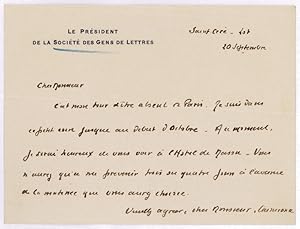 LE PRÉSIDENT
DE LA SOCIÉTÉ DES GENS DE LETTRES
Saint Céré - Lot
20 Septembre
Cher Monsieur
C'est mon tour d'être absent de Paris. Je suis dans
ce petit coin jusque au début d'Octobre. A ce moment,
je serai heureux de vous voir à l'Hôtel de Massa. Vous
n'aurez qu'à me prévenir trois ou quatre jours à l'avance
de la matinée que vous aurez choisie.
Veuillez agréer, cher Monsieur,